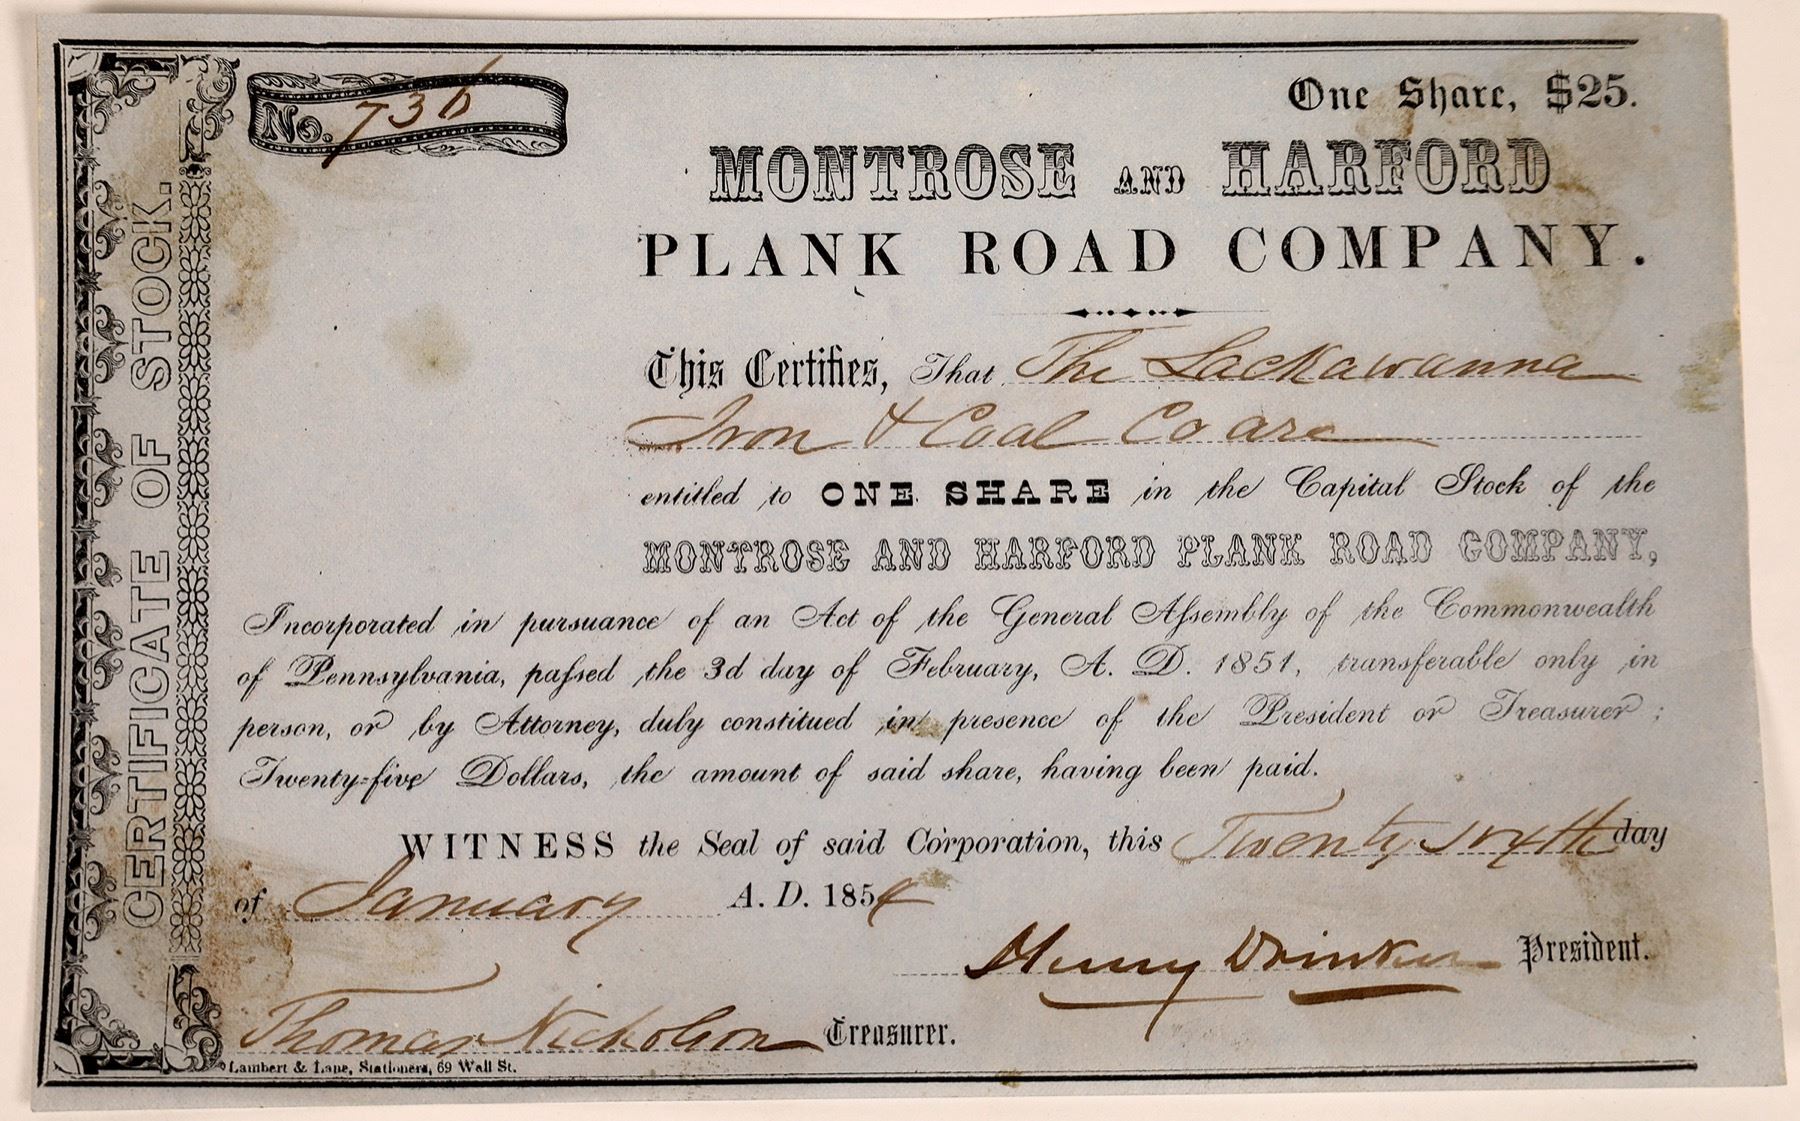 No. 736
One Share, $25.
MONTROSE AND HARFORD
PLANK ROAD COMPANY.
This Certifies, That The Lackawanna
Iron & Coal Co are
entitled to ONE SHARE in the Capital Stock of the
MONTROSE AND HARFORD PLANK ROAD COMPANY,
Incorporated in pursuance of an Act of the General Assembly of the Commonwealth
of Pennsylvania, passed the 3d day of February, A. D. 1851, transferable only in
person, or by Attorney, duly constitued in presence of the President or Treasurer;
Twenty-five Dollars, the amount of said share, having been paid.
WITNESS the Seal of said Corporation, this Twenty sixth day
of January A. D. 1854
Henry Drinker President.
Thomas Nicholson Treasurer.
Lambert & Lane, Stationers, 69 Wall St.
CERTIFICATE OF STOCK.